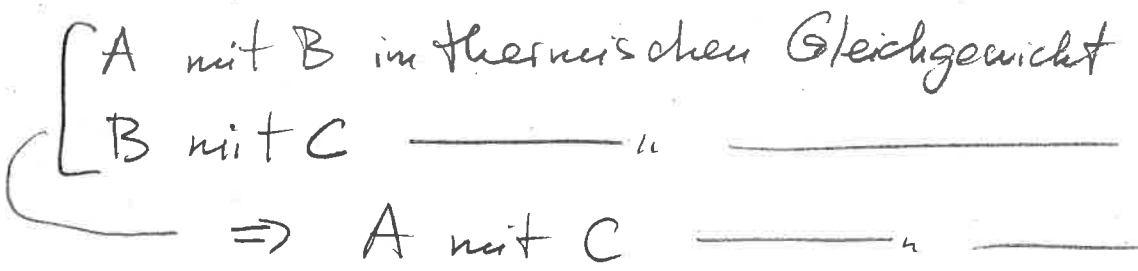 A mit B im thermischen Gleichgewicht
B mit C —— " ——
⇒ A mit C —— " ——